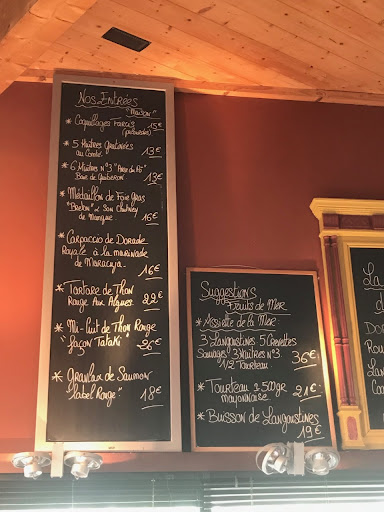 Nos Entrées
"Maison"
* Coquillages Farcis 15€
(palourdes)
* 5 Huîtres Gratinées
au Comté 13€
* 6 Huîtres N°3
Baie de Quiberon 13€
* Médaillon de Foie Gras
"Breton" & Son Chutney
de Mangue 16€
* Carpaccio de Dorade
Royale à la marinade
de Maracuja. 16€
* Tartare de Thon
Rouge Aux Algues. 22€
* Mi-Cuit de Thon Rouge
"façon Tataki" 26€
* Gravlax de Saumon
Label Rouge. 18€
Suggestions
Fruits de Mer
* Assiette de la Mer
3 Langoustines 5 Crevettes
Sauvages 3 Huîtres N°3
1/2 Tourteau 36€
* Tourteau ± 500gr
mayonnaise 21€
* Buisson de Langoustines
19€
La